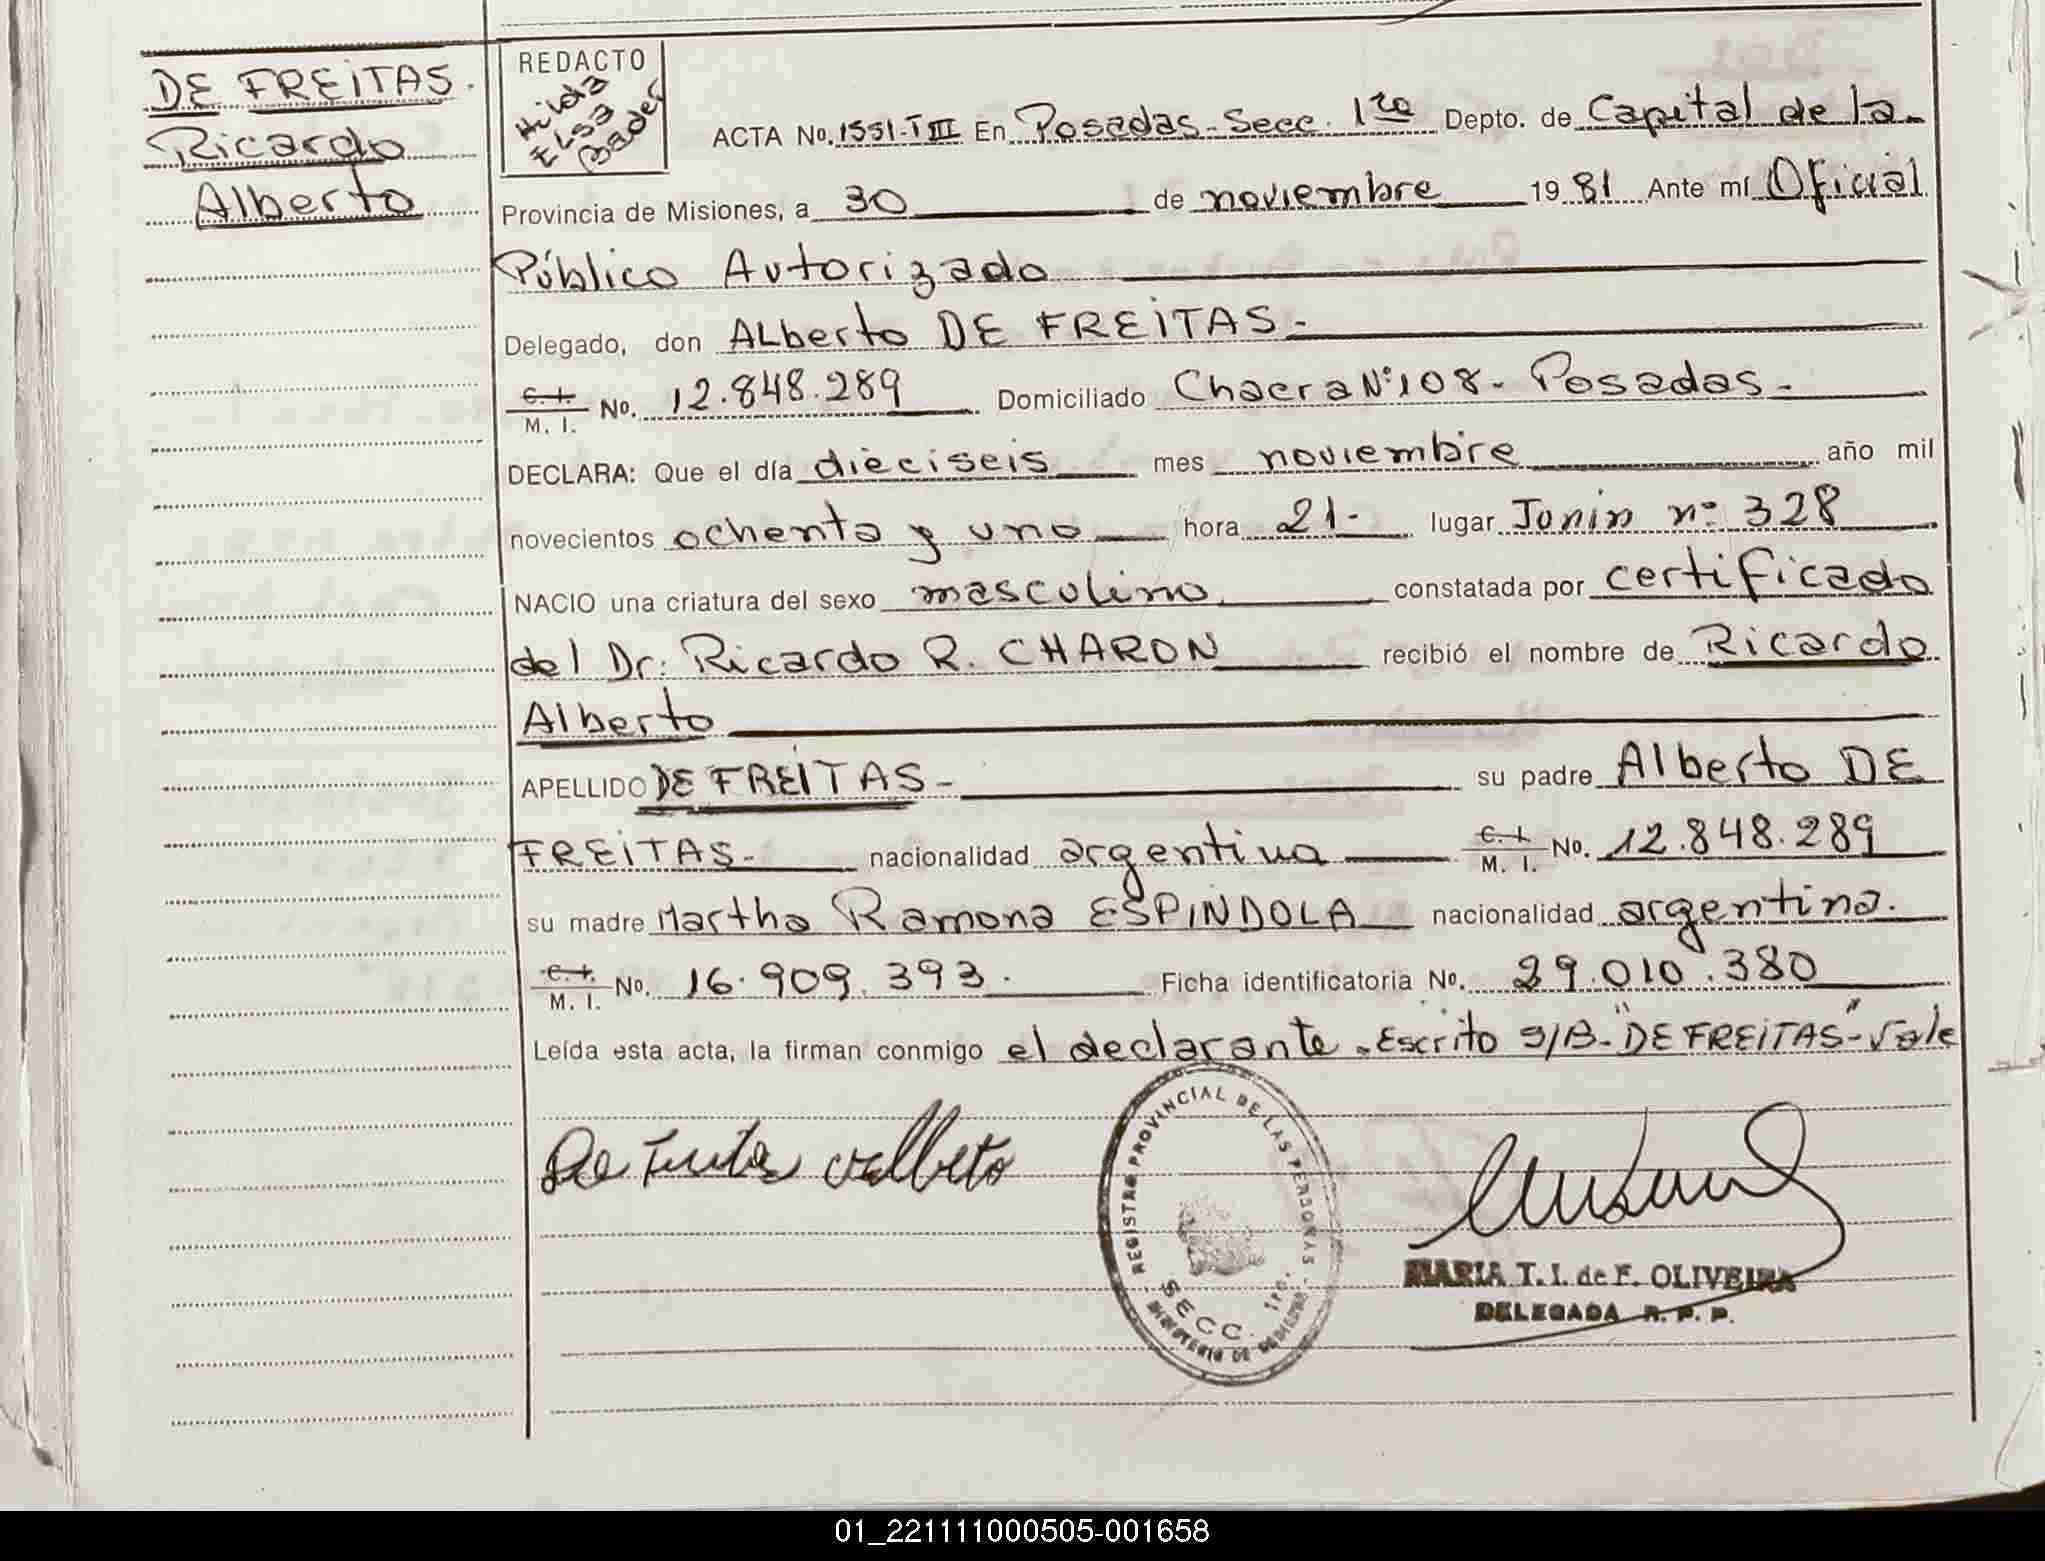 DE FREITAS.
Ricardo
Alberto
REDACTO
Hilda
Elsa
Bader
ACTA No. 1551-T III En Posadas-Secc. 1ra Depto. de Capital de la
Provincia de Misiones, a 30 de noviembre 1981 Ante mí Oficial
Público Autorizado
Delegado, don ALberto DE FREITAS-
C. I. / M. I. No. 12.848.289 Domiciliado Chacra Nº 108- Posadas-
DECLARA: Que el día dieciseis mes noviembre año mil
novecientos ochenta y uno hora 21- lugar Junin nº 328
NACIO una criatura del sexo masculino constatada por certificado
del Dr: Ricardo R. CHARON recibió el nombre de Ricardo
Alberto
APELLIDO DE FREITAS- su padre Alberto DE
FREITAS- nacionalidad argentina C. I. / M. I. No. 12.848.289
su madre Martha Ramona ESPINDOLA nacionalidad argentina.
C. I. / M. I. No. 16.909.393. Ficha identificatoria No. 29.010.380
Leída esta acta, la firman conmigo el declarante. Escrito S/B- "DE FREITAS"- Vale
REGISTRO PROVINCIAL DE LAS PERSONAS
SECC. 1ra.
MINISTERIO DE GOBIERNO
MARIA T. I. de F. OLIVEIRA
DELEGADA R. P. P.
01_221111000505-001658